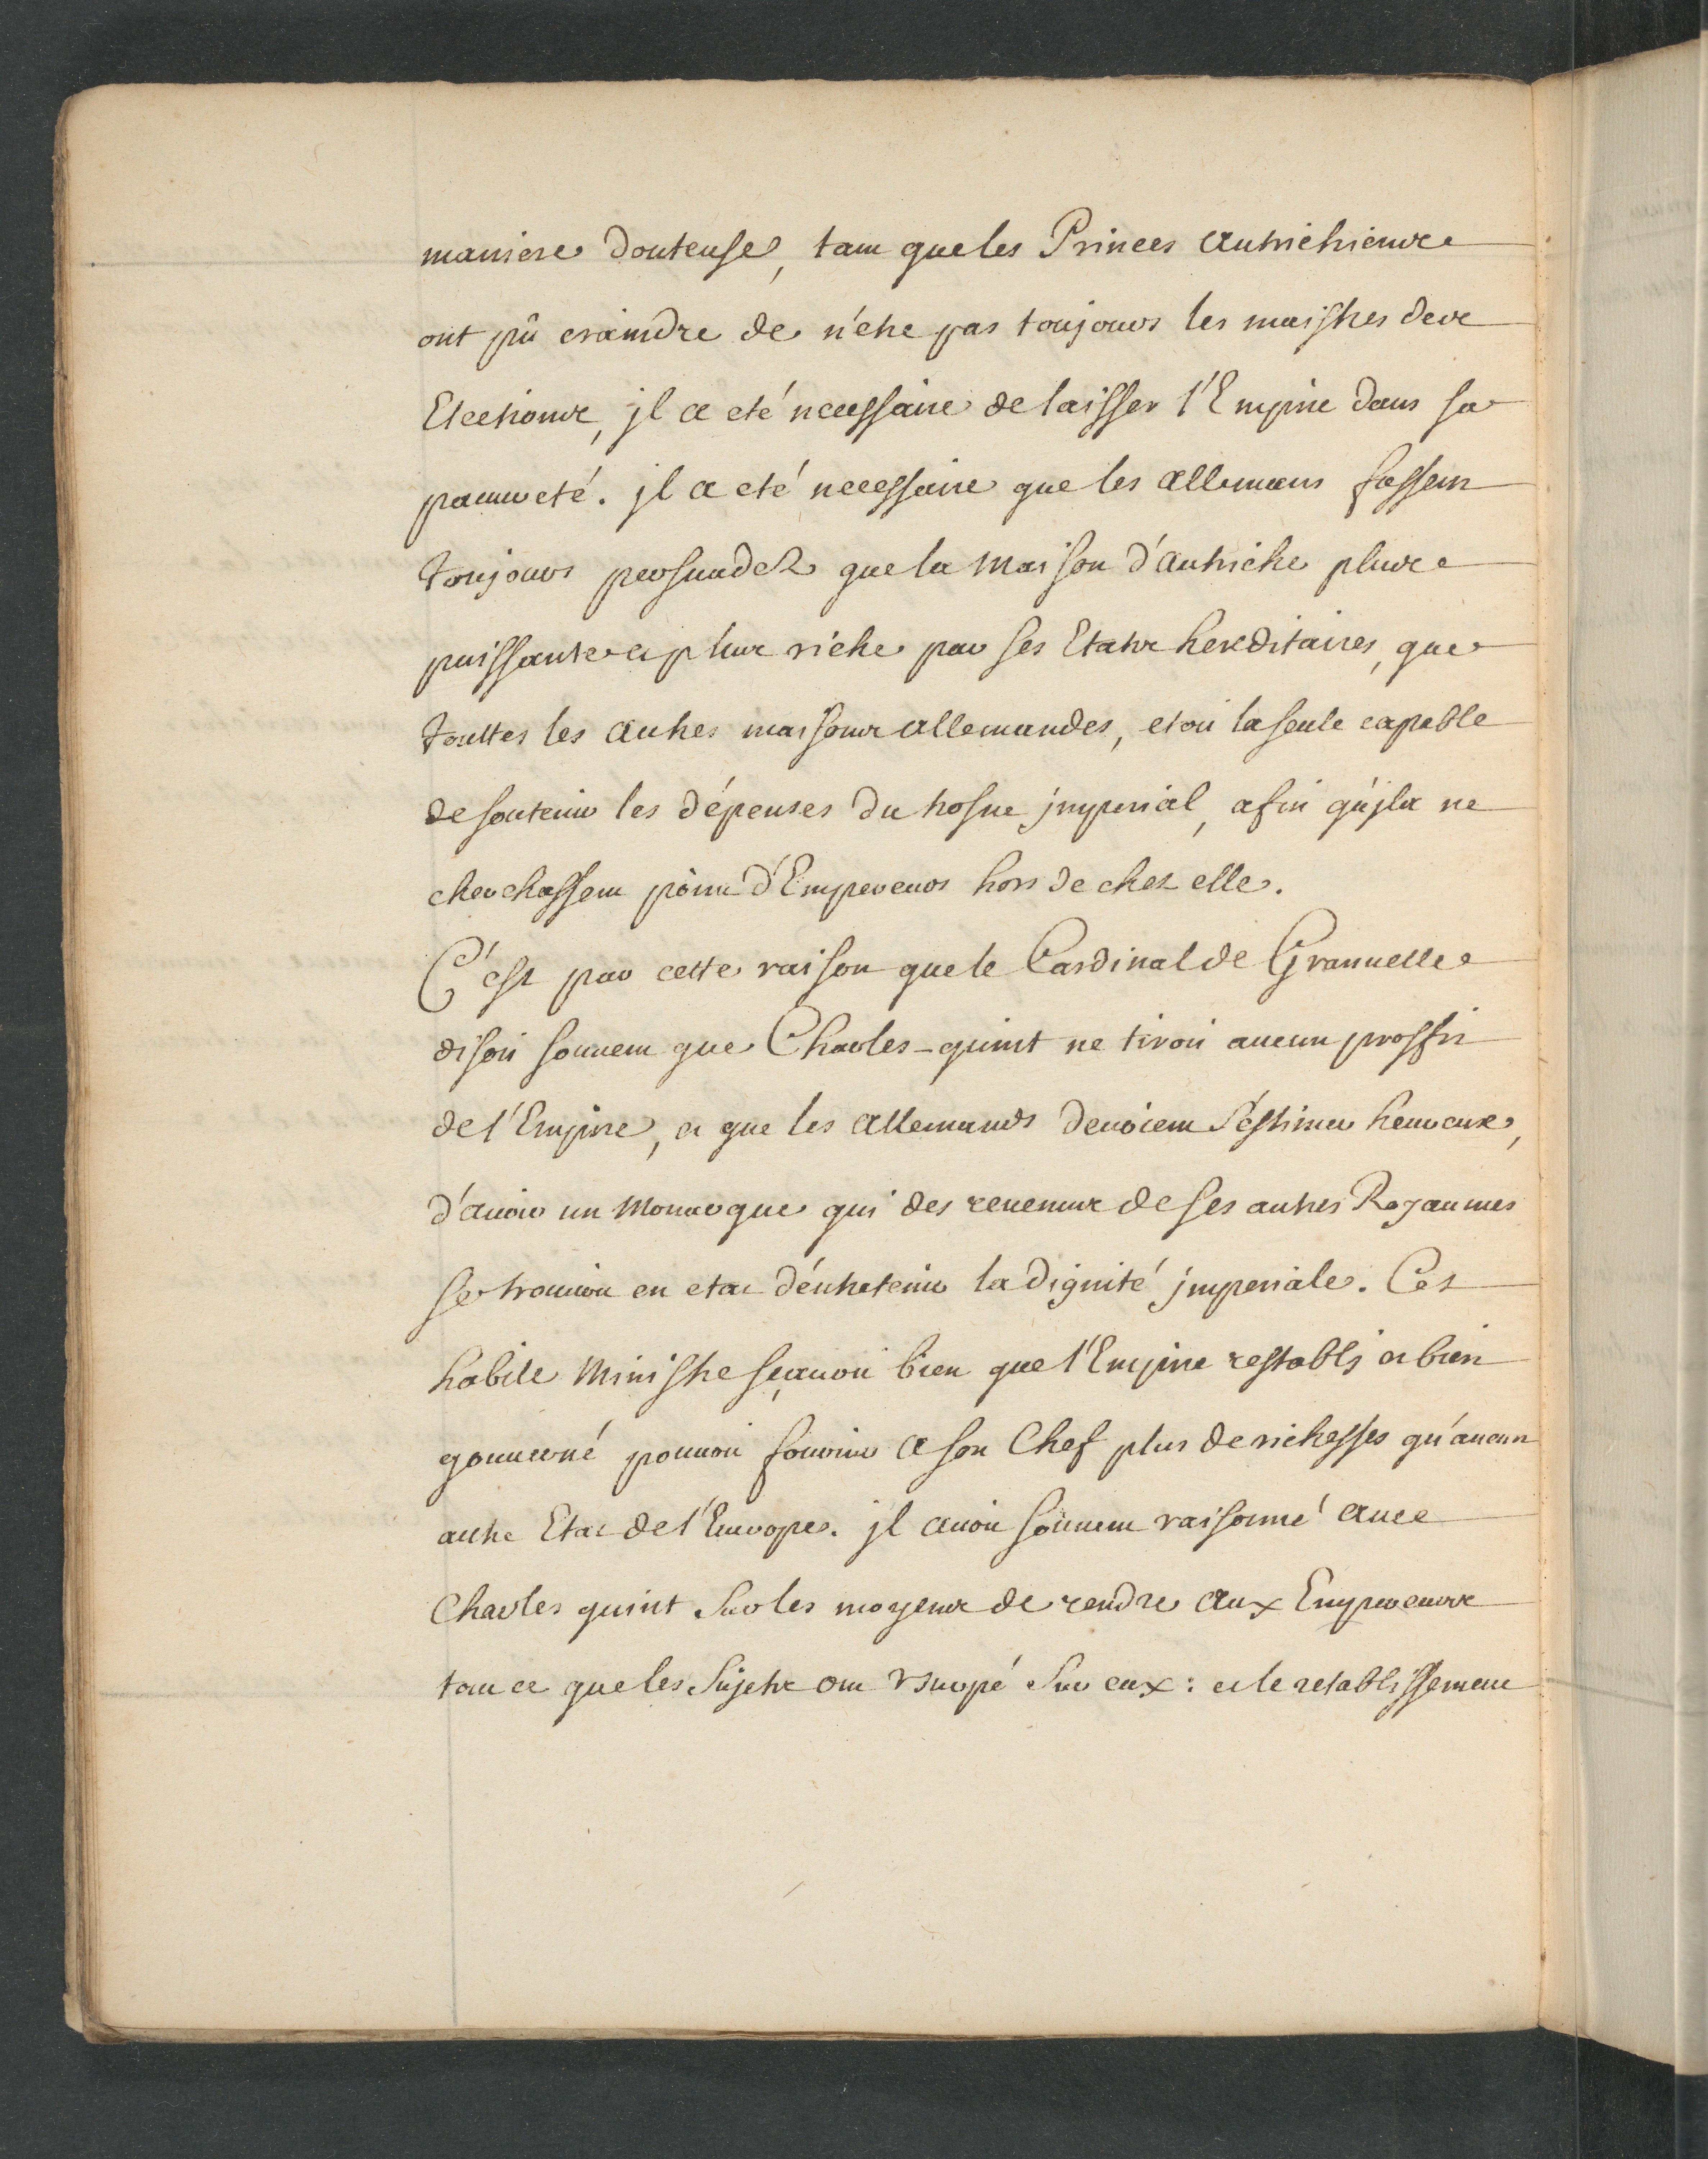 maniere douteuse, tant que les Princes autrichiens
ont pû craindre de n'etre pas toujours les maistres des
Elections, jl a eté necessaire de laisser l'Empire dans sa
pauureté. jl a eté necessaire que les allemans fussent
toujours persuadez que la Maison d'autriche plus
puissante et plus riche par ses Etats hereditaires, que
touttes les autres maisons allemandes, etoit la seule capable
de soutenir les dépenses du trosne jmperial, afin qu'jls ne
cherchassent point d'Empereurs hors de chez elle.
C'est par cette raison que le Cardinal de Granuelle
disoit souuent que Charles-quint ne tiroit aucun proffit
de l'Empire, et que les allemands deuoient s'estimer heureux,
d'auoir un Monarque qui des reuenus de ses autres Royaumes
se trouuoit en etat d'entretenir la dignité jmperiale. Cet
habile Ministre sçauoit bien que l'Empire restabli et bien
gouuerné pouuoit fournir a son Chef plus de richesses qu'aucun
autre Etat de l'Europe. jl auoit souuent raisonné auec
Charles quint sur les moyens de rendre aux Empereurs
tout ce que les Sujets ont vsurpé sur eux: et le retablissement